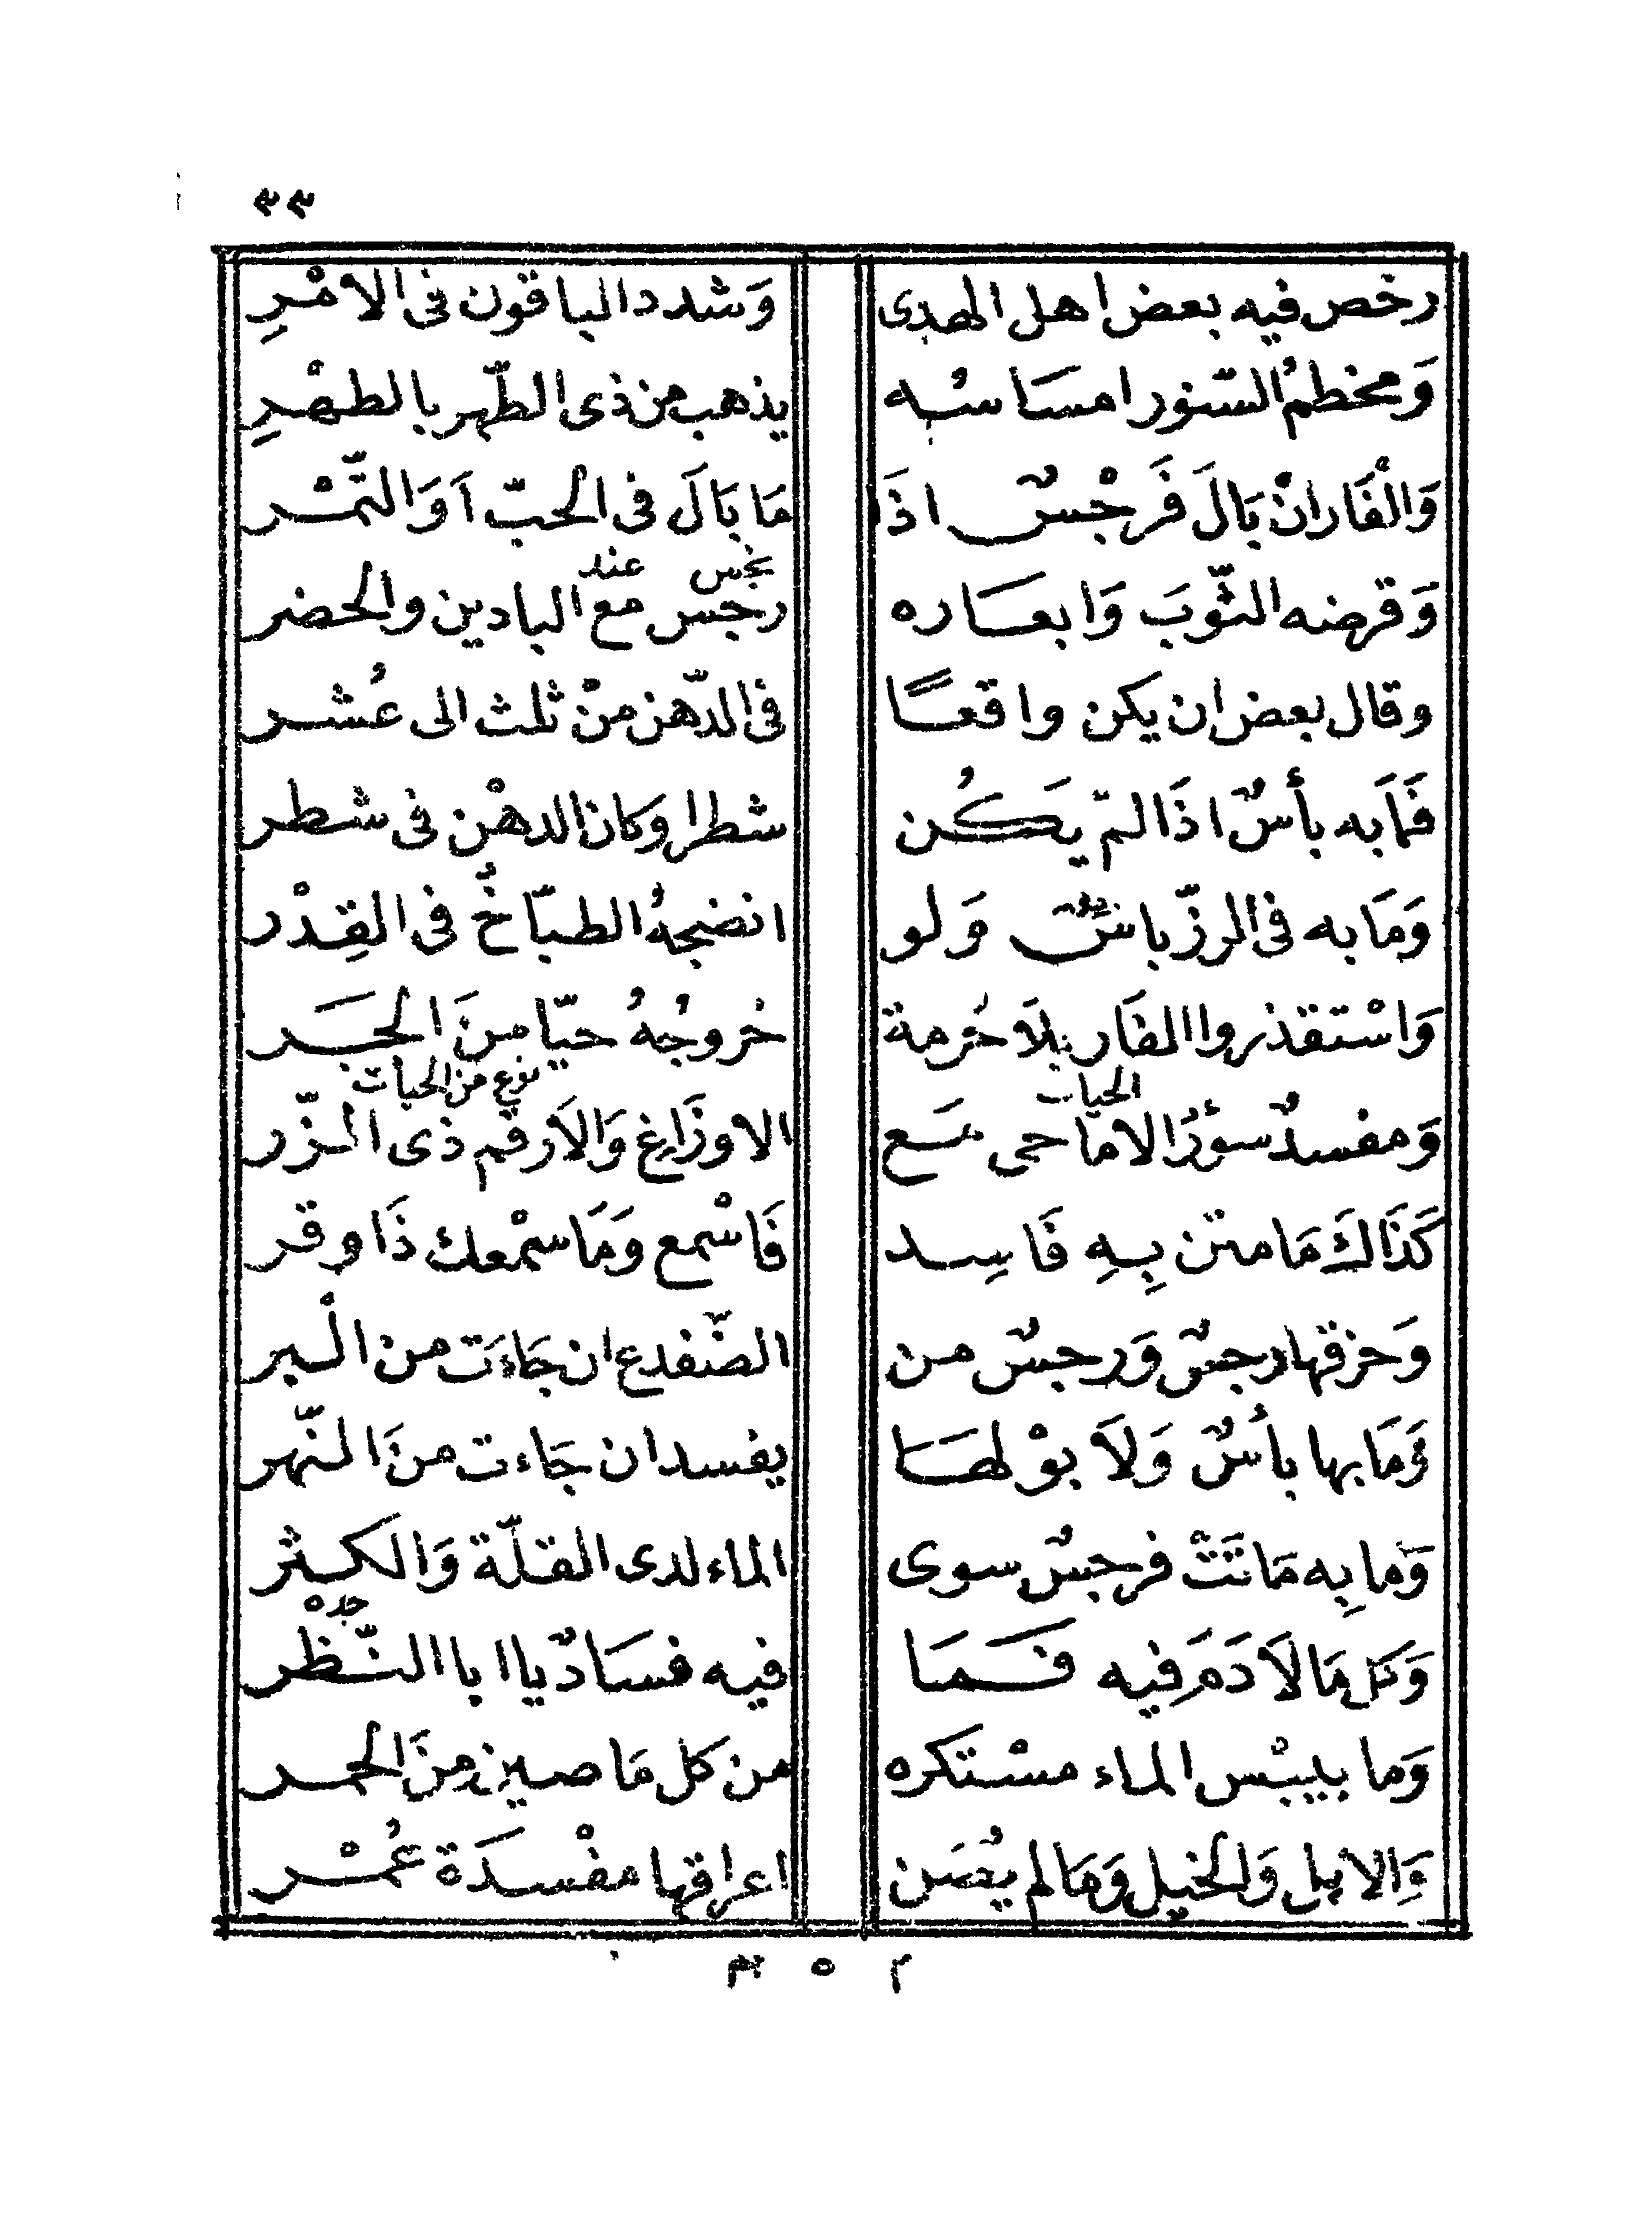 ٣٣
رخص فيه بعض اهل الهدى وَشدد الباقون فى الامْرِ
وَمخطمُ السّنور امسَاسُه يذهب من ذى الطّهر بالطهْرِ
وَالْفَار انْ بَالَ فَرجْسٌ اذَا مَا بَالَ فى الحبّ اَوَ التّمْر
نجس عند
وَقرضه الثّوبَ وَابعَاره رجس مع البادين والحضر
وقال بعض ان يكن واقعًا فى الدّهن منْ ثلث الى عُشر
فمَابه بأسٌ اذَا لمّ يَكُن شطرا وكان الدهْن فى شطر
وَمَابه فى الرزّ باسٌ وَلو انضجهُ الطبّاخُ فى القِدْر
وَاسْتقذروا الفَار بلَا حُرمة خروجُهُ حيّا منَ الجَحر
الحيات نوع من الحيات
وَمفسدٌ سؤرُ الامَاحى مَع الاوزَاغ وَالاَرقم ذى
كَذَاكَ مَا متن بِهِ فَاسِد فَاسْمع وَمَا سمْعك ذَا وقر
وَخزقها رجسٌ وَرجسٌ من الضّفدع ان جَاءَت من الْبير
وَمَابها بأسٌ وَلَا بوْلهَا يفسد ان جَاءت منَ النّهر
وَما بِه مَاتَتْ فرجسٌ سوى الماء لدى القلّة وَالكثر
جده
وَكل مَا لَا دَمَ فيه فمَا فيه فسَادٌ يا ابا النّظر
وَما بيبْس الماء مسْتكره من كل مَا صين منَ الحمر
وَالابل وَالخيل وَمَالم يُصَن اعراقها مفْسدَة عُمْر